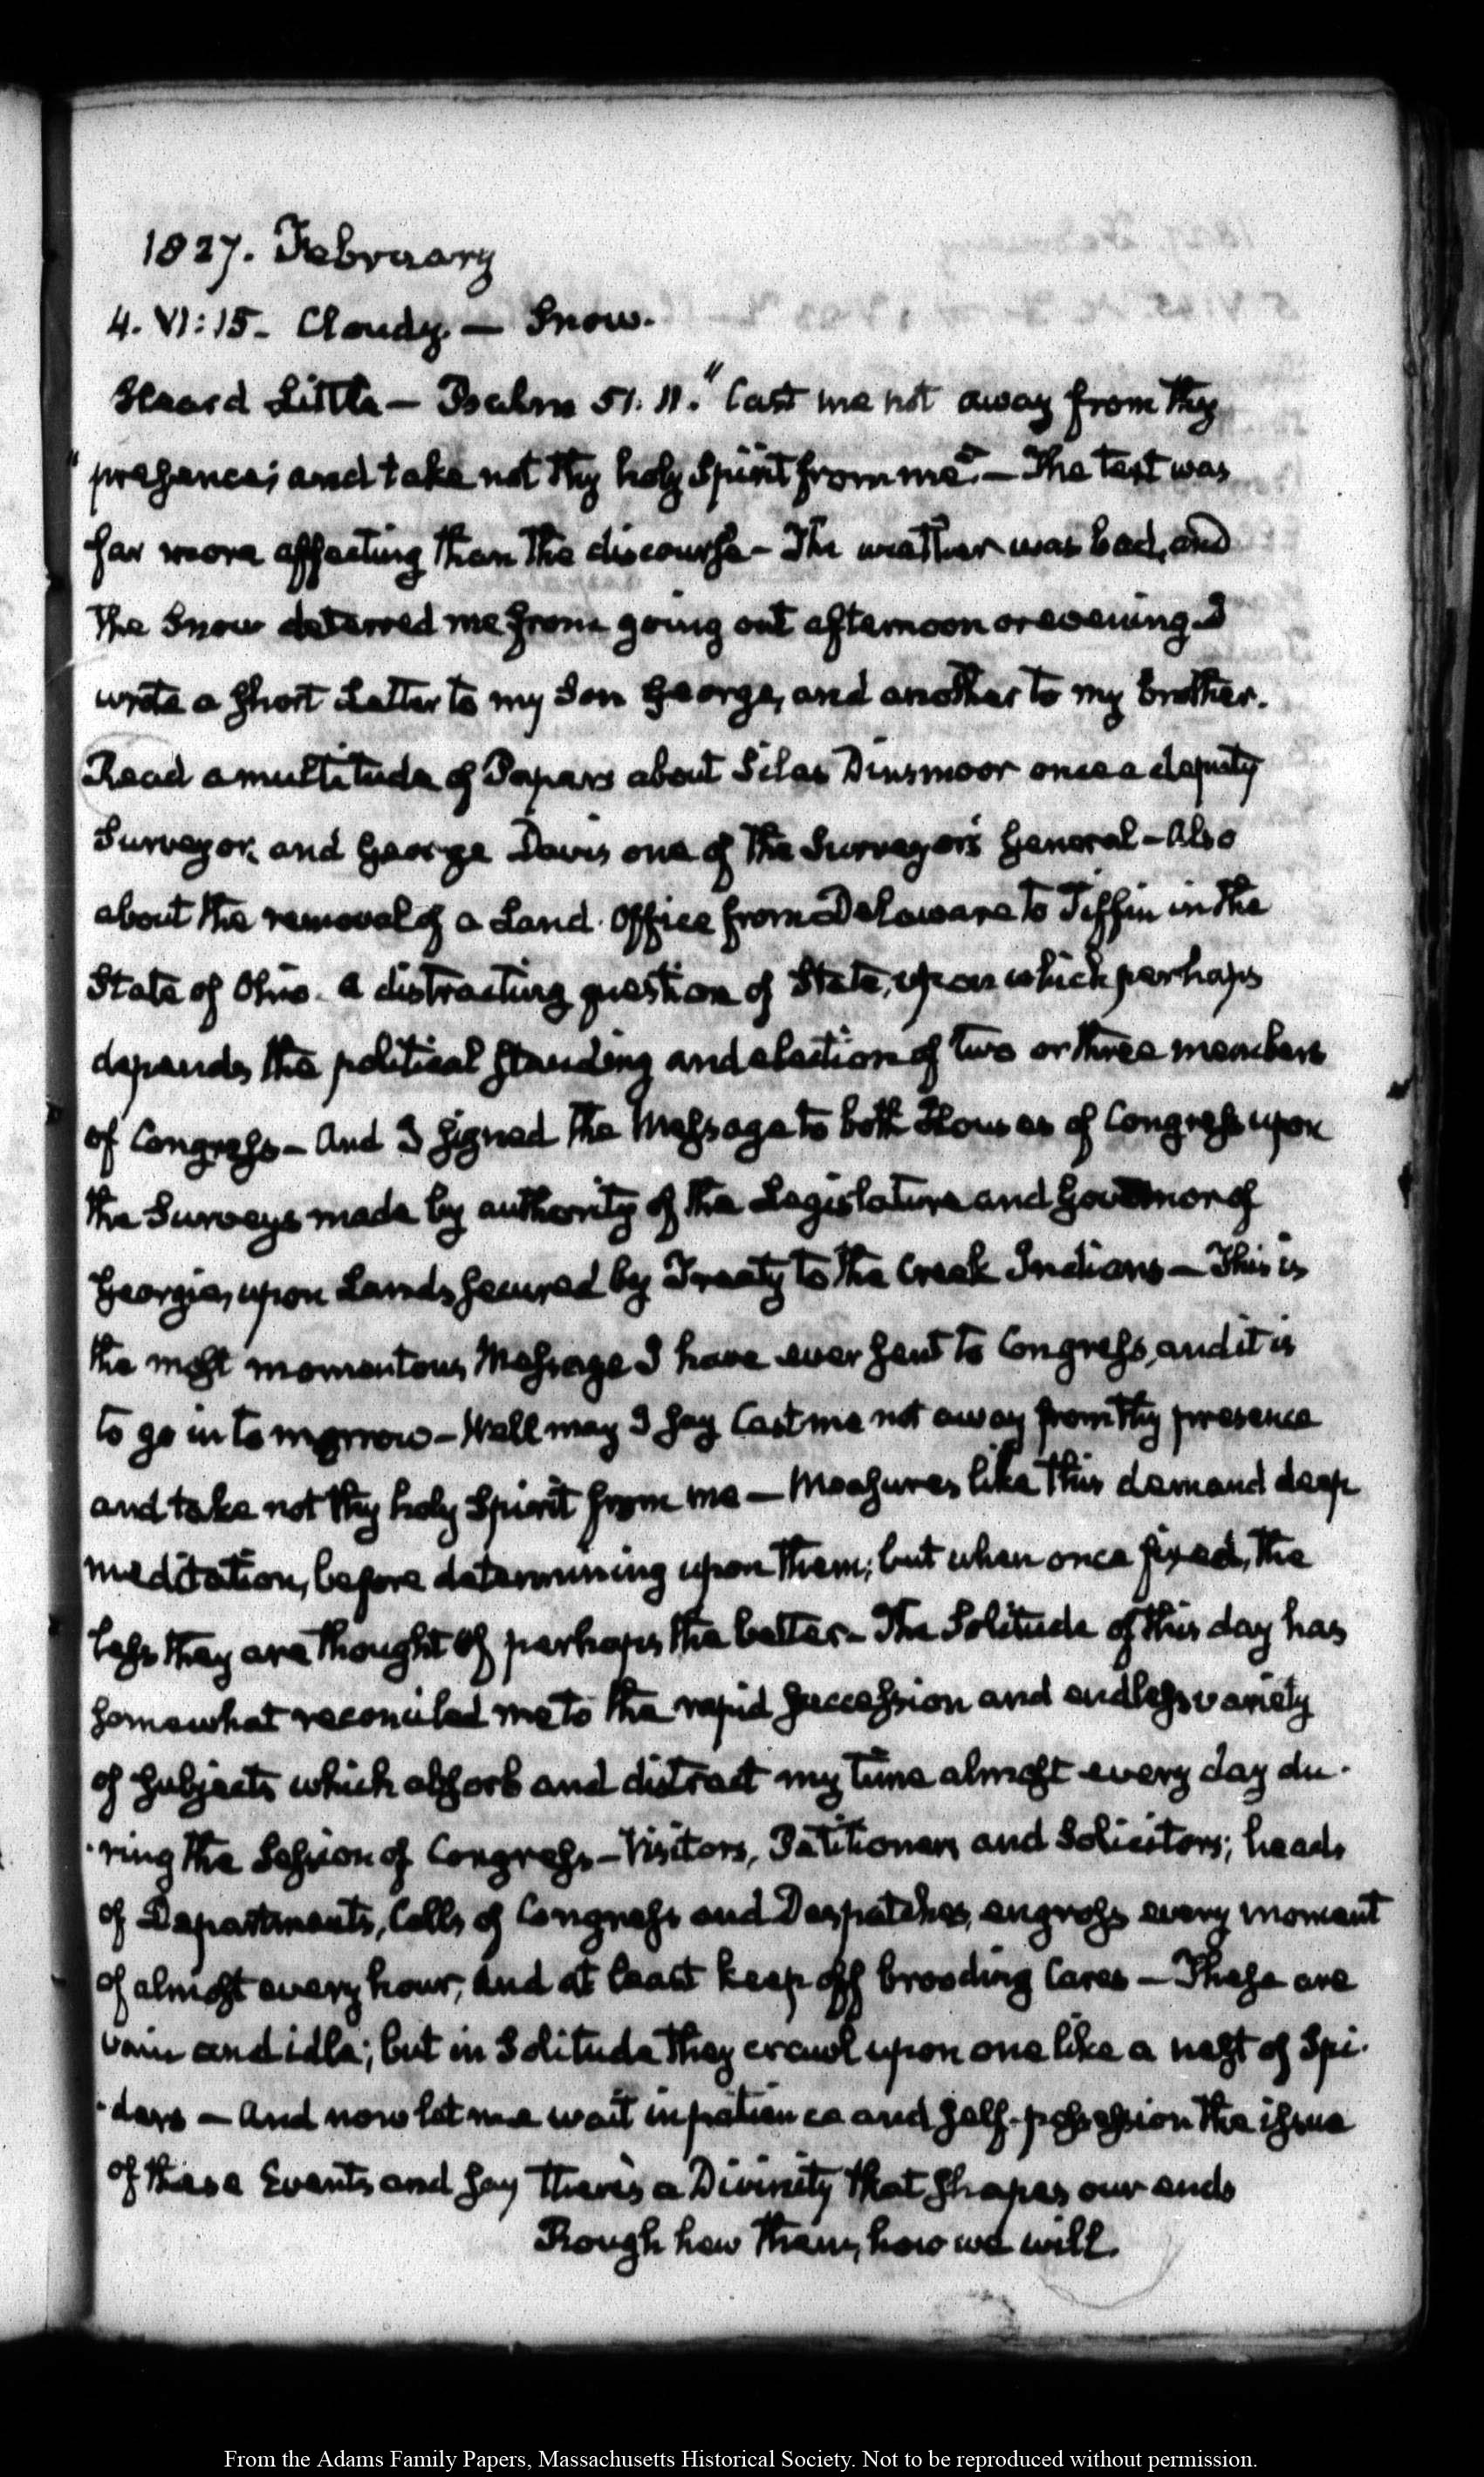 1827. February
4. VI:15. Cloudy. — Snow.
Heard Little — Psalm 51. 11. "Cast me not away from thy
"presence; and take not thy holy Spirit from me." — The text was
far more affecting than the discourse — The weather was bad, and
the Snow deterred me from going out afternoon or evening. I
wrote a short Letter to my Son George, and another to my brother.
Read a multitude of Papers about Silas Dinsmoor once a deputy
Surveyor, and George Davis one of the Surveyors General — Also
about the removal of a Land-Office from Delaware to Tiffin in the
State of Ohio. A distracting question of State, upon which perhaps
depends the political standing and election of two or three members
of Congress — And I signed the Message to both Houses of Congress upon
the Surveys made by authority of the Legislature and Governor of
Georgia, upon Lands secured by Treaty to the Creek Indians — This is
the most momentous Message I have ever sent to Congress, and it is
to go in to morrow — Well may I say Cast me not away from thy presence
and take not thy holy Spirit from me — Measures like this demand deep
meditation, before determining upon them; but when once fixed, the
less they are thought of perhaps the better — The Solitude of this day has
somewhat reconciled me to the rapid succession and endless variety
of subjects which absorb and distract my time almost every day du-
-ring the Session of Congress — Visitors, Petitioners and Solicitors; heads
of Departments, Calls of Congress and Despatches, engross every moment
of almost every hour, and at least keep off brooding Cares — These are
vain and idle; but in Solitude they crawl upon one like a nest of Spi-
-ders — And now let me wait in patience and self-possession the issue
of these Events and say There's a Divinity that shapes our ends
Rough hew them, how we will.
From the Adams Family Papers, Massachusetts Historical Society. Not to be reproduced without permission.